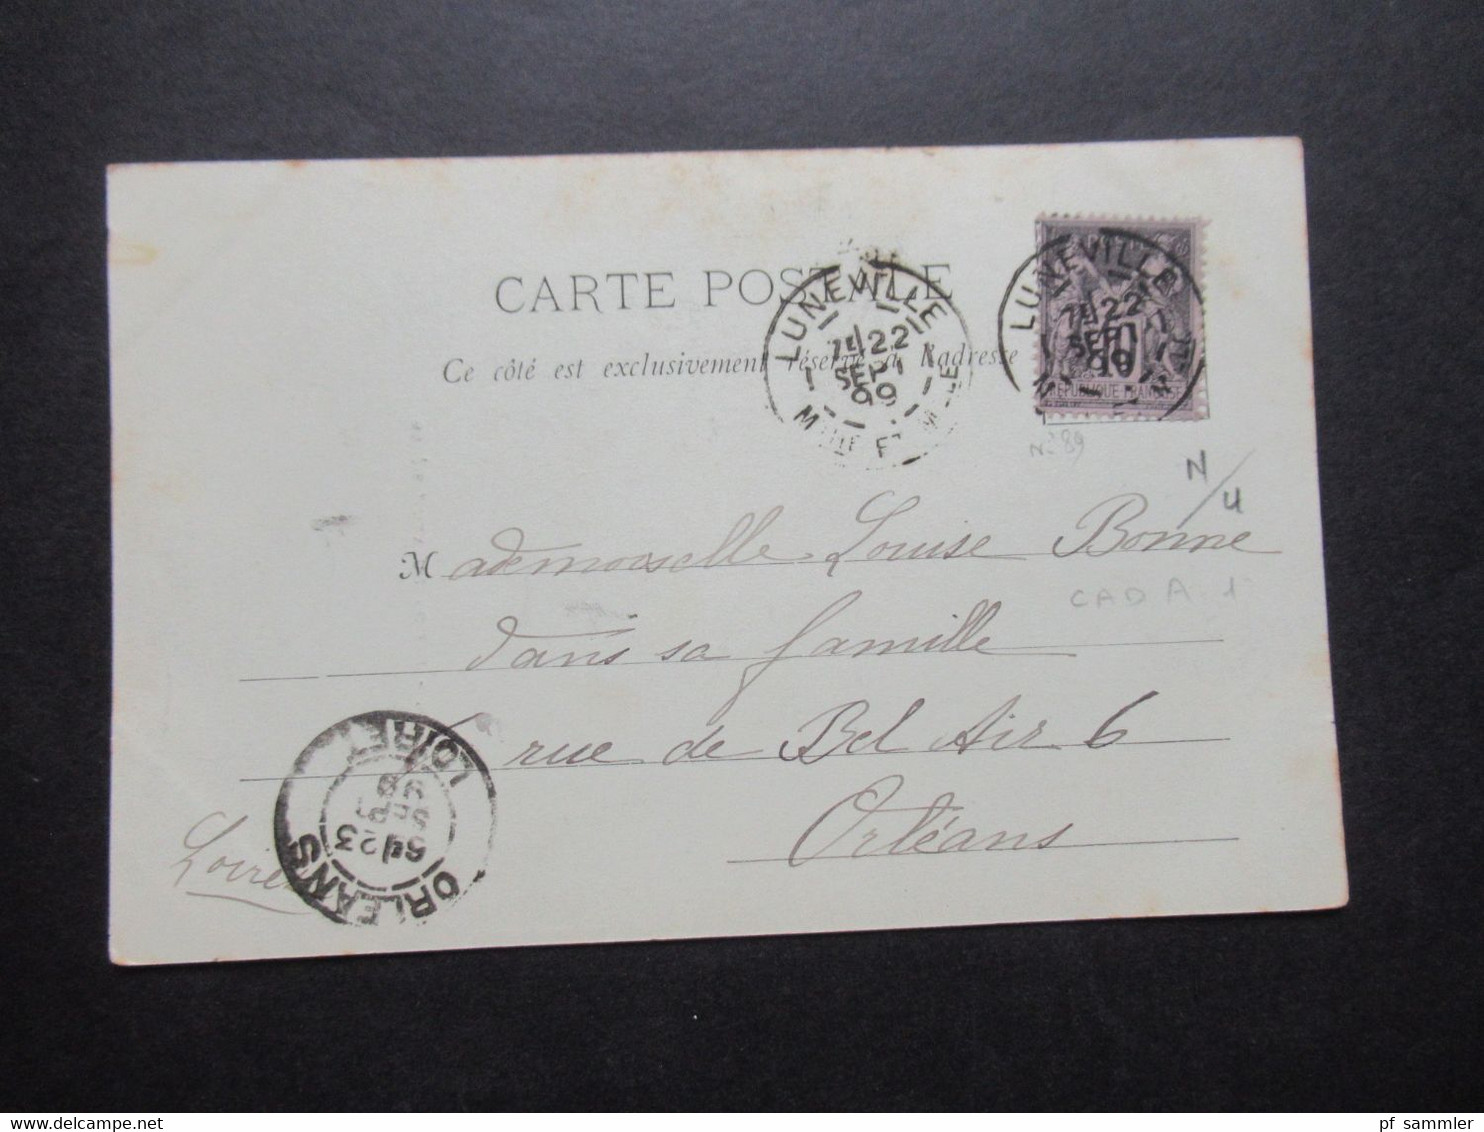 CARTE POSTALE
Ce côté est exclusivement réservé à l'adresse
LUNEVILLE
7E 22
SEPT
99
MTHE ET M-LLE
LUNEVILLE
7E 22
SEPT
99
10
REPUBLIQUE FRANCAISE
No 89
N/U
Mademoiselle Louise Bonne
CAD A 1
dans sa famille
rue de Bel Air 6
Orléans
Loiret
ORLEANS
6E 23
SEPT
99
LOIRET
pf sammler